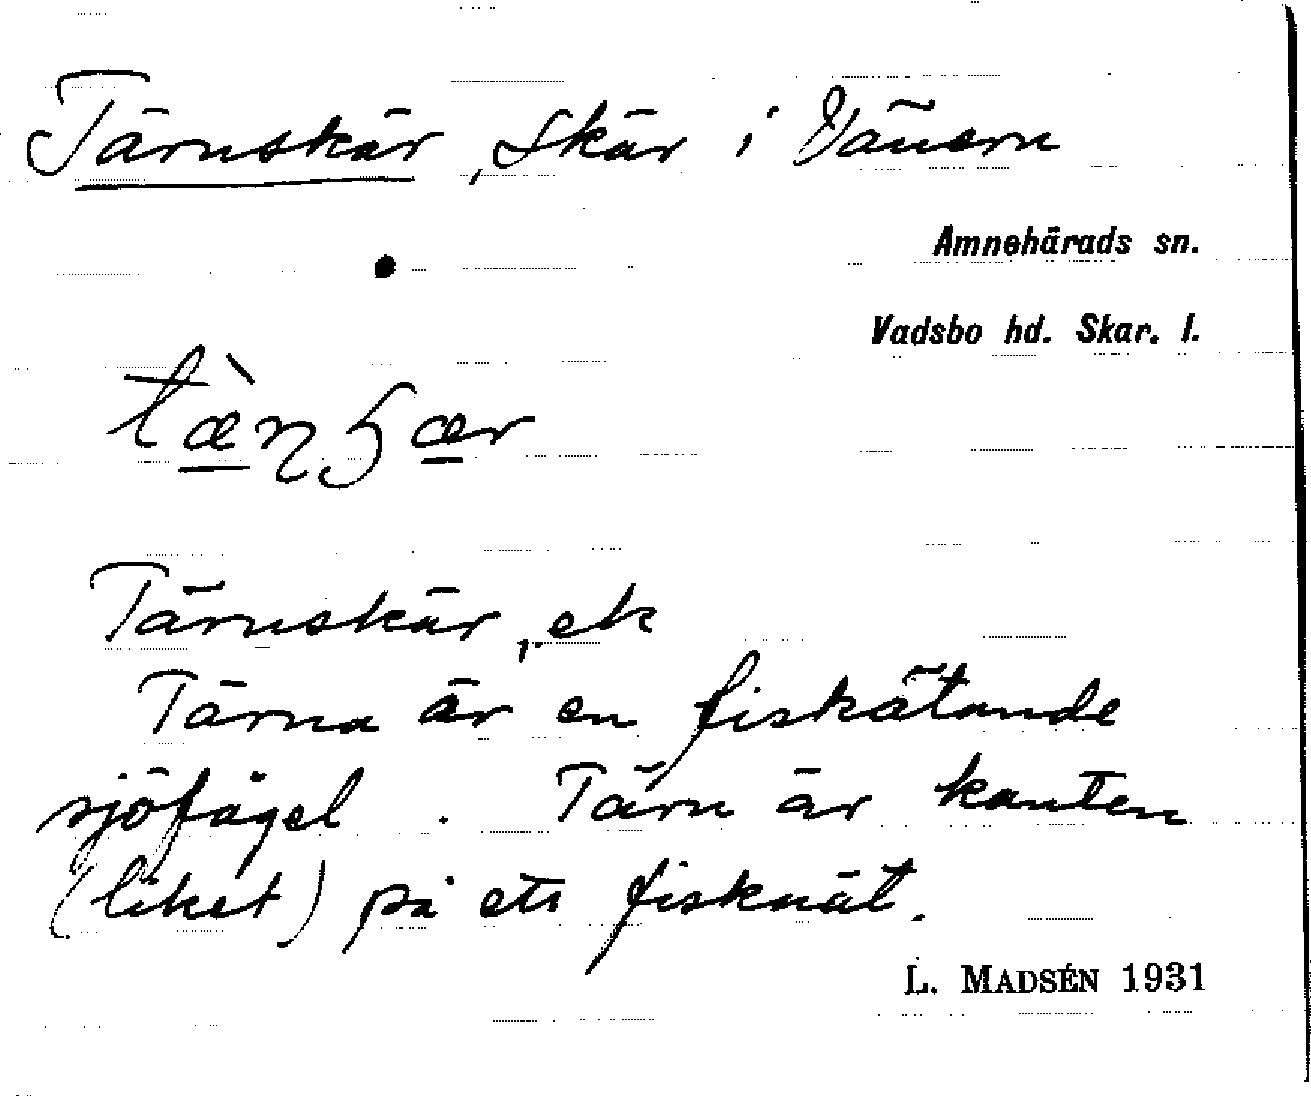 Tärnskär, Skär i Vänern
Amnehärads sn.
Vadsbo hd. Skar. l.
Tärnskär, ek
Tärna är en fiskätande
sjöfågel. Tärn är kanten
(liket) på ett fisknät.
L. MADSÉN 1931